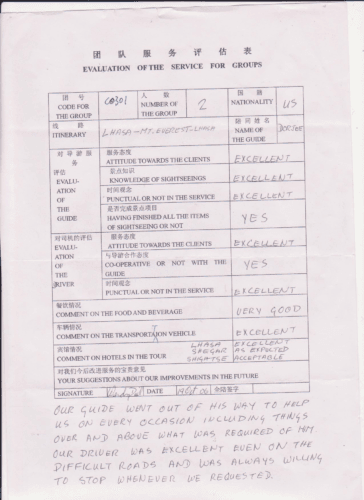 团 队 服 务 评 估 表
EVALUATION OF THE SERVICE FOR GROUPS
团 号 CODE FOR THE GROUP C0301 人 数 NUMBER OF THE GROUP 2 国 籍 NATIONALITY US
线 路 ITINERARY LHASA-MT.EVEREST-LHASA 陪同姓名 NAME OF THE GUIDE DORJEE
对导游服务评估 EVALUATION OF THE GUIDE
服务态度 ATTITUDE TOWARDS THE CLIENTS EXCELLENT
景点知识 KNOWLEDGE OF SIGHTSEEINGS EXCELLENT
时间观念 PUNCTUAL OR NOT IN THE SERVICE EXCELLENT
是否完成景点项目 HAVING FINISHED ALL THE ITEMS OF SIGHTSEEING OR NOT YES
对司机的评估 EVALUATION OF THE DRIVER
服务态度 ATTITUDE TOWARDS THE CLIENTS EXCELLENT
与导游合作态度 CO-OPERATIVE OR NOT WITH THE GUIDE YES
时间观念 PUNCTUAL OR NOT IN THE SERVICE EXCELLENT
餐饮情况
COMMENT ON THE FOOD AND BEVERAGE VERY GOOD
车辆情况
COMMENT ON THE TRANSPORTAION VEHICLE EXCELLENT
宾馆情况 LHASA EXCELLENT
COMMENT ON HOTELS IN THE TOUR SHEGAR AS EXPECTED
SHIGATSE ACCEPTABLE
对我们今后改进服务的宝贵意见
YOUR SUGGESTIONS ABOUT OUR IMPROVEMENTS IN THE FUTURE
SIGNATURE DATE 全陪签字
OUR GUIDE WENT OUT OF HIS WAY TO HELP
US ON EVERY OCCASION INCLUDING THINGS
OVER AND ABOVE WHAT WAS REQUIRED OF HIM.
OUR DRIVER WAS EXCELLENT EVEN ON THE
DIFFICULT ROADS AND WAS ALWAYS WILLING
TO STOP WHENEVER WE REQUESTED.